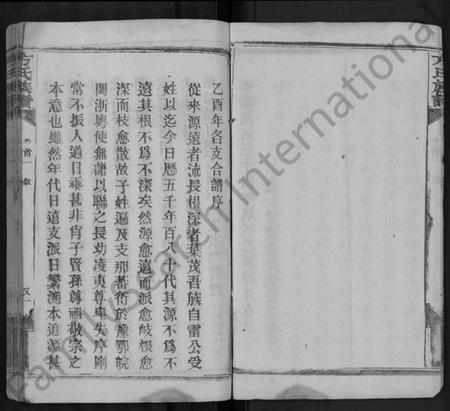 乙酉年各支合譜序
從來源遠者流長根深者葉茂吾族自雷公受
姓以迄今日歷五千年百八十代其源不為不
遠其根不為不深矣然源愈遠而派愈歧根愈
深而枝愈散故子姓遍及支那蕃衍於豫鄂皖
閩浙粵使無譜以聯之長幼凌夷尊卑失序剛
常不振人道日乖甚非肖子賢孫尊祖敬宗之
本意也雖然年代日遠支派日繁溯本追源甚
方氏族譜
首
方氏族譜
FamilySearch International